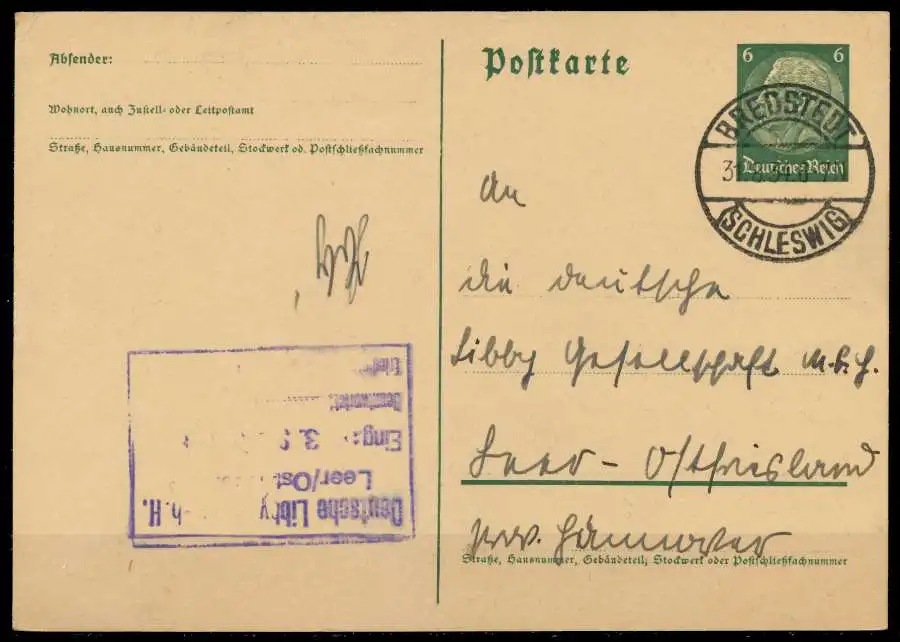 Absender:
Wohnort, auch Zustell- oder Leitpostamt
Straße, Hausnummer, Gebäudeteil, Stockwerk od. Postschließfachnummer
Postkarte
6 6
Deutsches Reich
BREDSTEDT
(SCHLESWIG)
An
die deutsche
Libby Gesellschaft m.b.H.
Leer - Ostfriesland
prov. Hannover
Straße, Hausnummer, Gebäudeteil, Stockwerk oder Postschließfachnummer
Deutsche Libby
Leer/Ost
Eing.: 3.
Beantwortet: